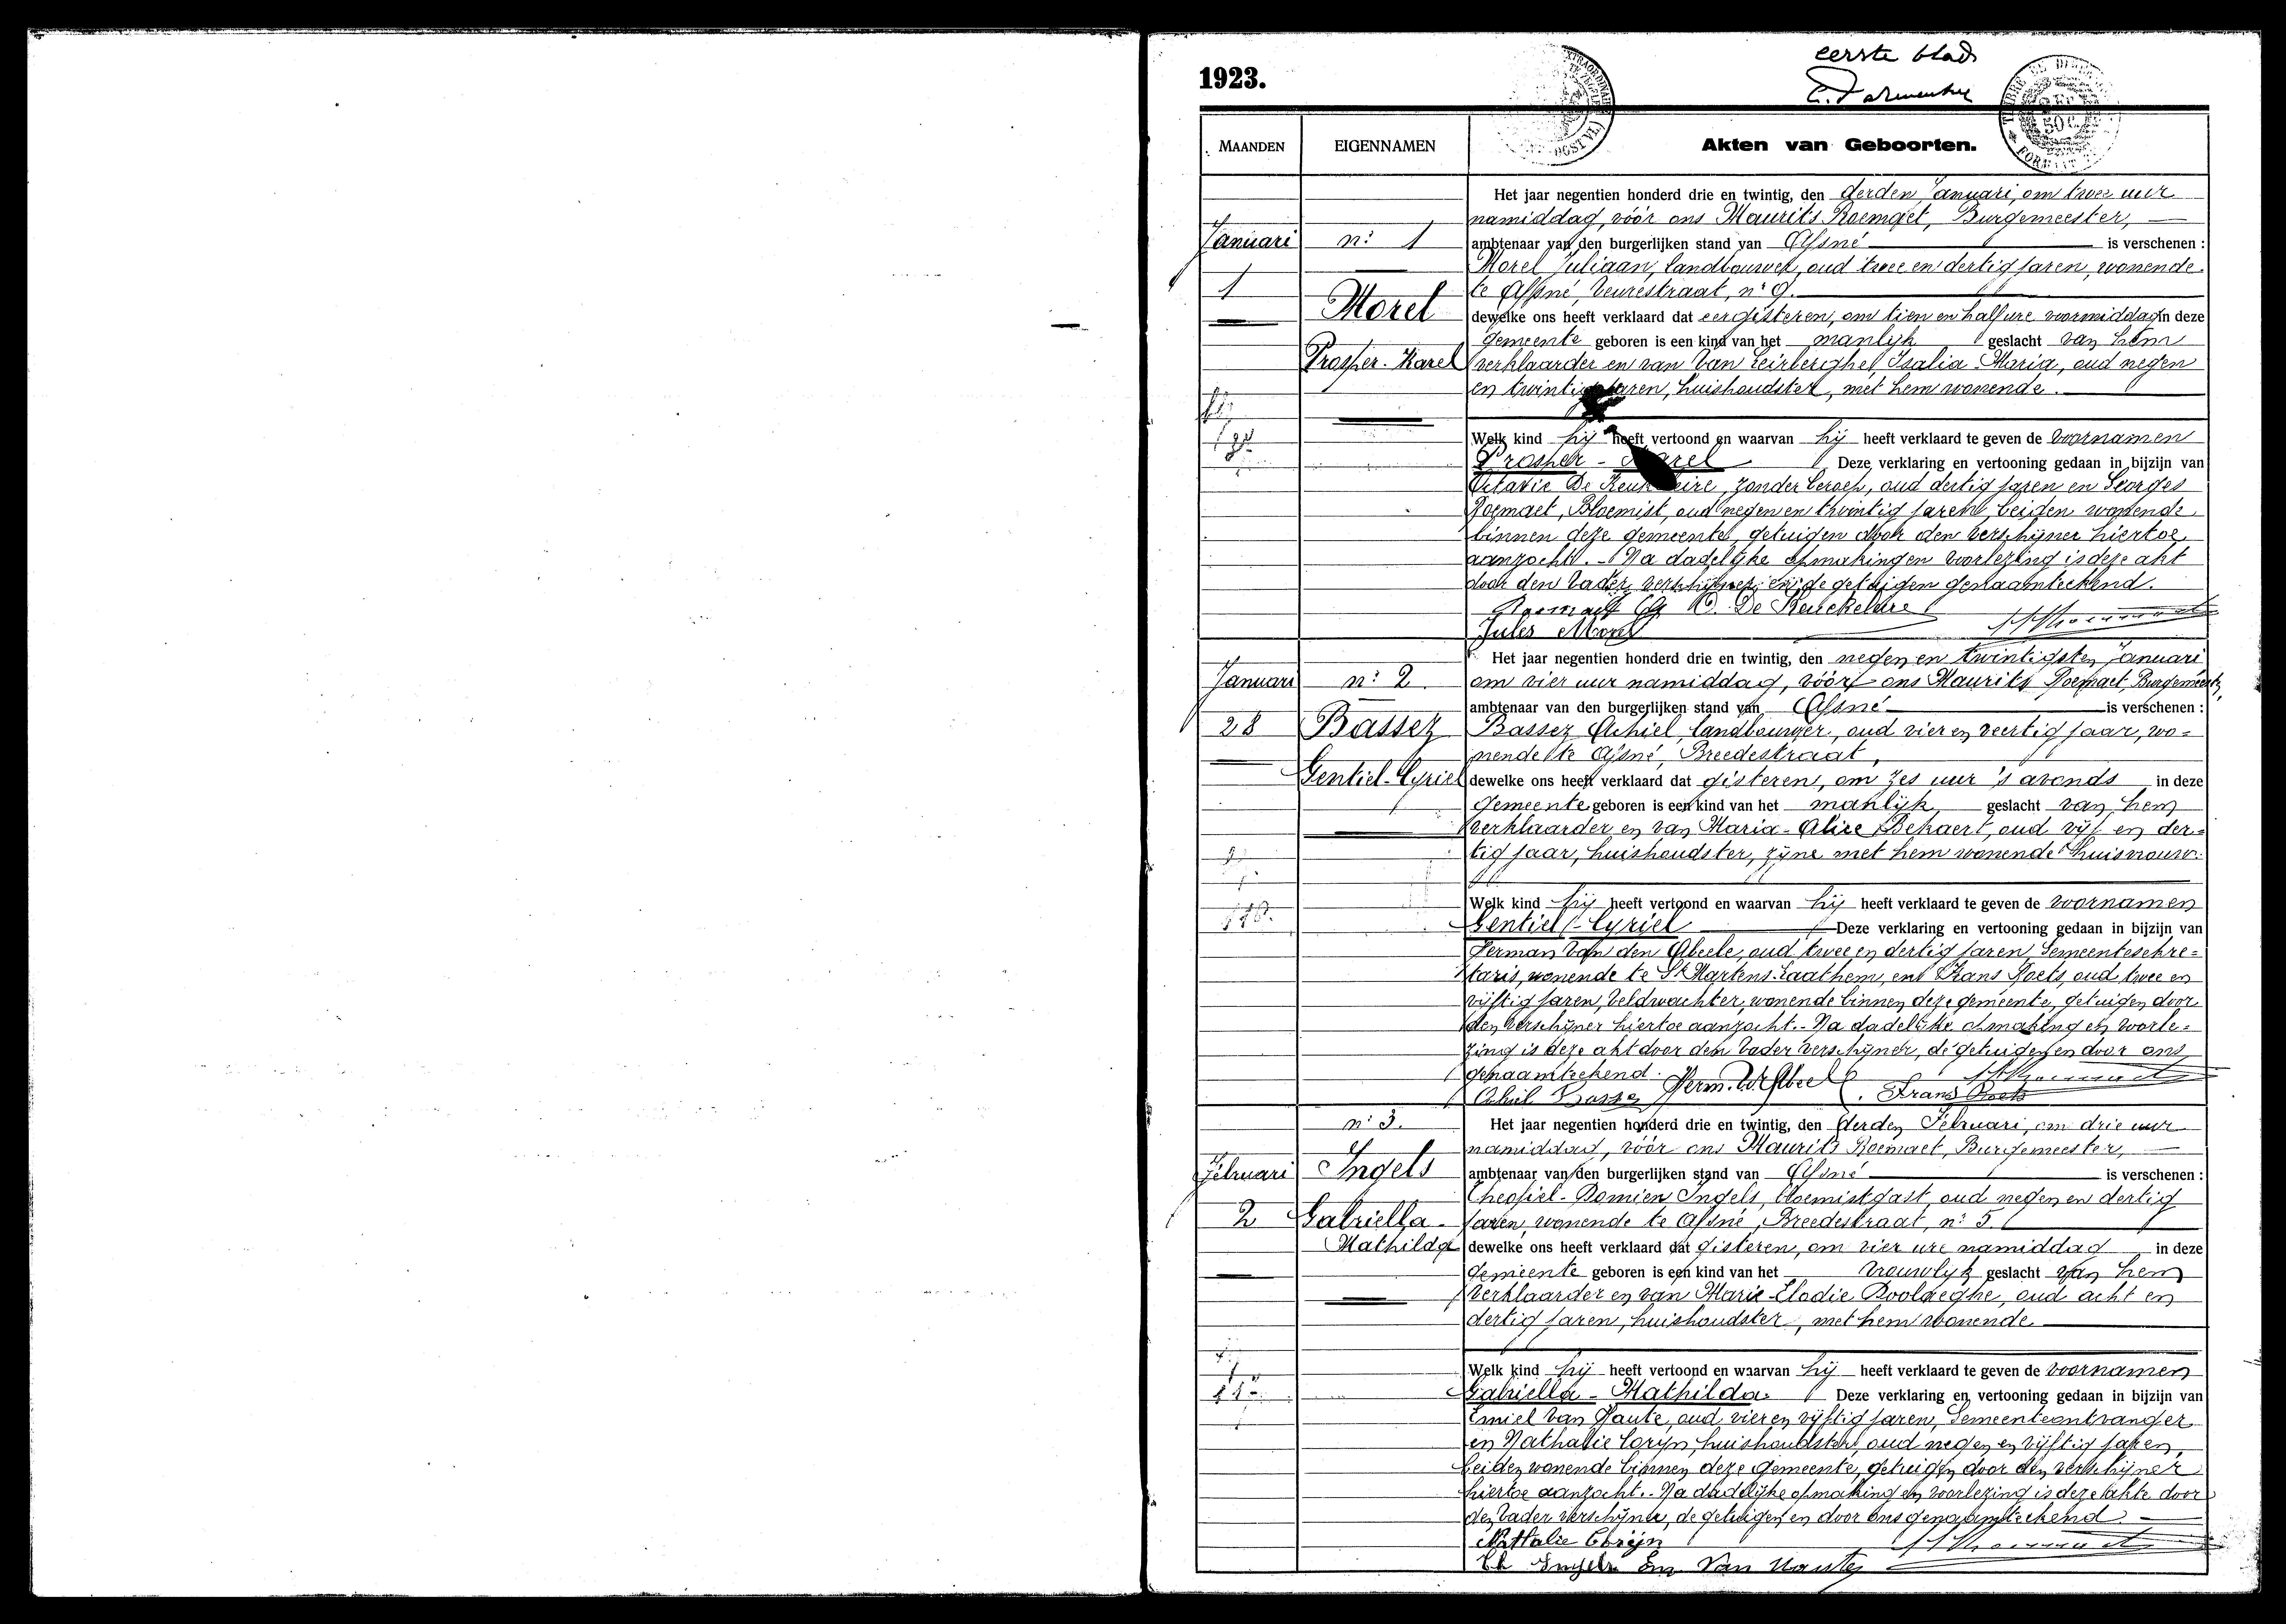 1923.
eerste blad
MAANDEN
EIGENNAMEN
Akten van Geboorten.
Januari
1
n: 1
Morel
Prosper-Karel
Het jaar negentien honderd drie en twintig, den derden Januari, om twee uur
namiddag, vóór ons Maurits Roemaet, Burgemeester,
ambtenaar van den burgerlijken stand van Afsné is verschenen :
Morel Juliaan, landbouwer, oud twee en dertig jaren, wonende
te Afsné, Veurestraat, n: 9.
dewelke ons heeft verklaard dat eergisteren, om tien en half ure voormiddag in deze
gemeente geboren is een kind van het manlijk geslacht van hem
verklaarder en van Van Leirberghe Isalia Maria, oud negen
en twintig jaren, huishoudster, met hem wonende.
Welk kind hij heeft vertoond en waarvan hij heeft verklaard te geven de voornamen
Prosper - Karel Deze verklaring en vertooning gedaan in bijzijn van
Octavie De Keukeleire, zonder beroep, oud dertig jaren en Georges
Roemaet, Bloemist, oud negen en twintig jaren, beiden wonende
binnen deze gemeente, getuigen door den verschijner hiertoe
aanzocht. - Na dadelijke opmaking en voorlezing is deze akt
door den vader, verschijner, en de getuigen genaamteekend.
Roemaet G. O. De Keuckeleire
Jules Morel
Januari
28
n: 2
Bassez
Gentiel-Cyriel
Het jaar negentien honderd drie en twintig, den negen en twintigsten Januari
om vier uur namiddag, vóór ons Maurits Roemaet, Burgemeester,
ambtenaar van den burgerlijken stand van Afsné is verschenen :
Bassez Achiel, landbouwer, oud vier en veertig jaar, wo=
nende te Afsné, Breedestraat,
dewelke ons heeft verklaard dat gisteren, om zes uur 's avonds in deze
gemeente geboren is een kind van het manlijk geslacht van hem
verklaarder en van Maria-Alice Bekaert, oud vijf en der=
tig jaar, huishoudster, zijne met hem wonende huisvrouw.
Welk kind hij heeft vertoond en waarvan hij heeft verklaard te geven de voornamen
Gentiel - Cyriel Deze verklaring en vertooning gedaan in bijzijn van
Herman Van den Abeele, oud twee en dertig jaren, Gemeentesekre=
taris, wonende te St Martens-Laathem, en Frans Roets, oud twee en
vijftig jaren, veldwachter, wonende binnen deze gemeente, getuigen door
den verschijner hiertoe aanzocht. - Na dadelijke opmaking en voorle=
zing is deze akt door den vader verschijner, de getuigen en door ons
genaamteekend.
Achiel Bassez Herm. V. Abeele Frans Roets
Februari
2
n: 3.
Ingels
Gabriella-
Mathilda
Het jaar negentien honderd drie en twintig, den derden Februari, om drie uur
namiddag, vóór ons Maurits Roemaet, Burgemeester,
ambtenaar van den burgerlijken stand van Afsné is verschenen :
Theofiel-Domien Ingels, bloemistgast, oud negen en dertig
jaren, wonende te Afsné, Breedestraat, n: 5.
dewelke ons heeft verklaard dat gisteren, om vier ure namiddag in deze
gemeente geboren is een kind van het vrouwlijk geslacht van hem
verklaarder en van Marie-Elodie Poolaeghe, oud acht en
dertig jaren, huishoudster, met hem wonende.
Welk kind hij heeft vertoond en waarvan hij heeft verklaard te geven de voornamen
Gabriella - Mathilda. Deze verklaring en vertooning gedaan in bijzijn van
Emiel Van Haute, oud vier en vijftig jaren, Gemeenteontvanger
en Nathalie Coryn, huishoudster, oud negen en vijftig jaren,
beiden wonende binnen deze gemeente, getuigen door den verschijner
hiertoe aanzocht. - Na dadelijke opmaking en voorlezing is deze akte door
den vader verschijner, de getuigen en door ons genaamteekend.
Nathalie Corijn
Th Ingels Em Van Haute